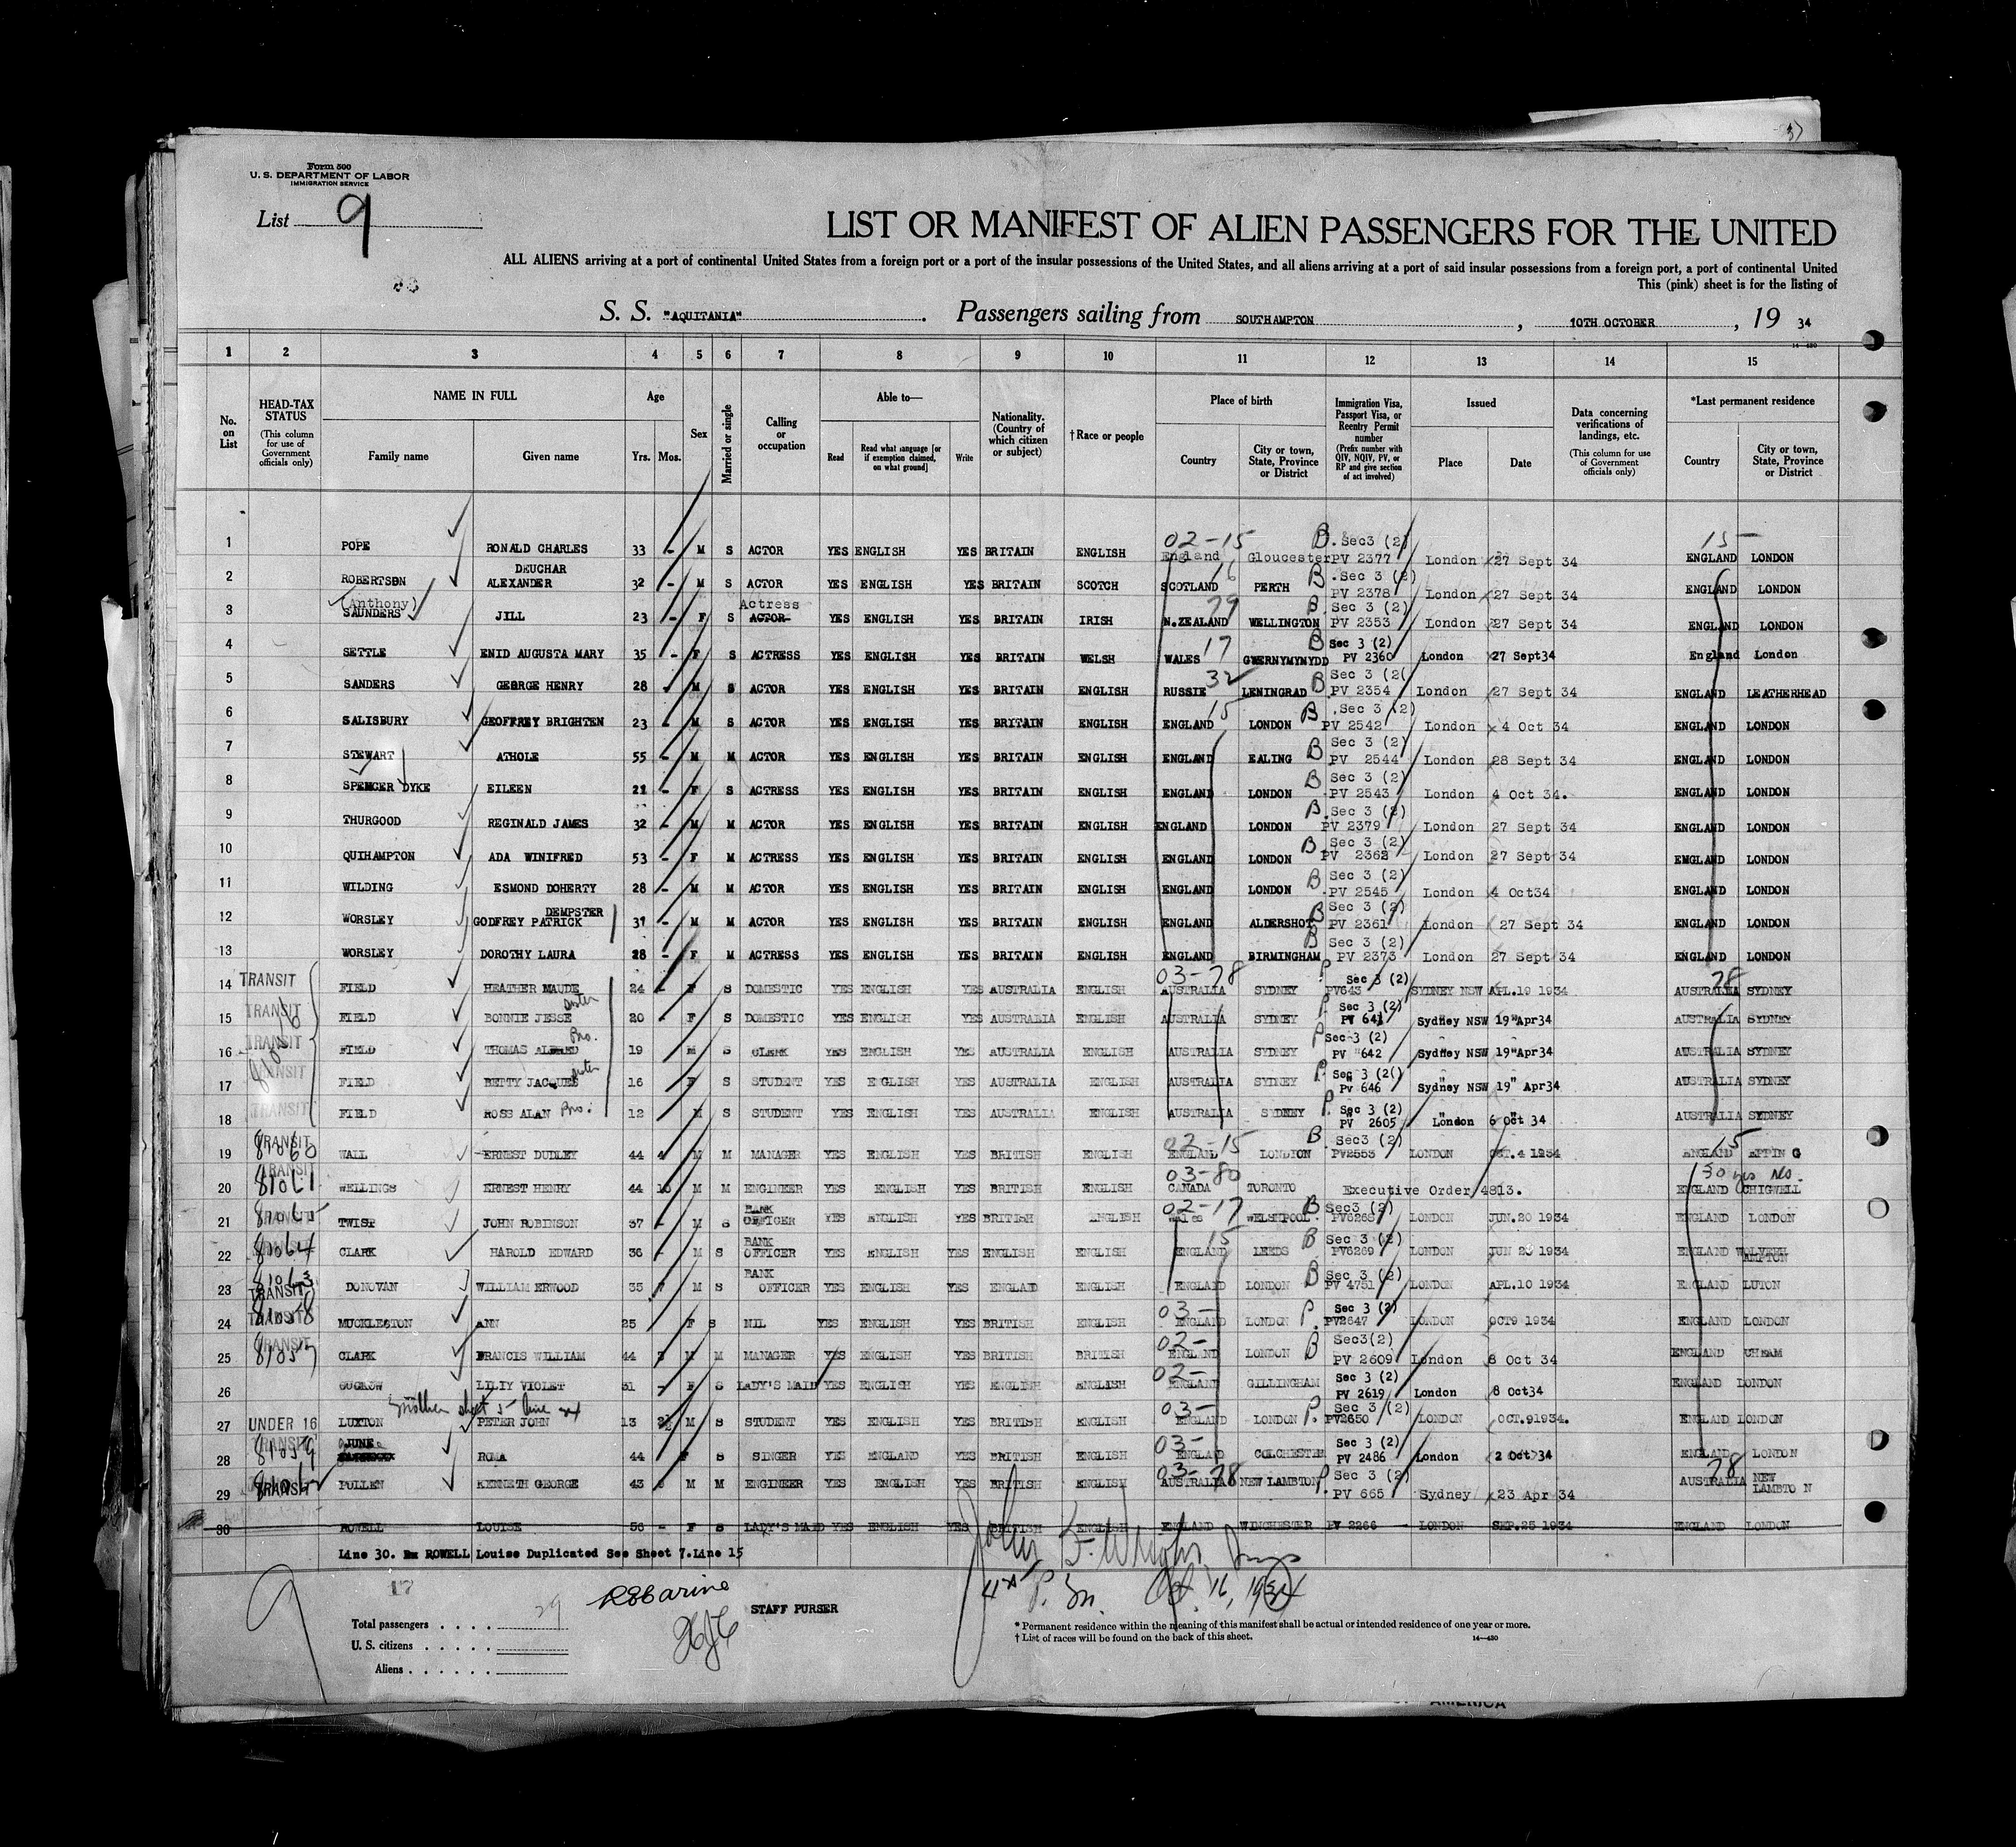 37
Form 500
U. S. DEPARTMENT OF LABOR
IMMIGRATION SERVICE
List 9
LIST OR MANIFEST OF ALIEN PASSENGERS FOR THE UNITED
ALL ALIENS arriving at a port of continental United States from a foreign port or a port of the insular possessions of the United States, and all aliens arriving at a port of said insular possessions from a foreign port, a port of continental United
This (pink) sheet is for the listing of
S. S. "AQUITANIA" . Passengers sailing from SOUTHAMPTON , 10TH OCTOBER , 19 34
14—430
1 2 3 4 5 6 7 8 9 10 11 12 13 14 15
No. on List
HEAD-TAX STATUS (This column for use of Government officials only)
NAME IN FULL Family name Given name
Age Yrs. Mos.
Sex
Married or single
Calling or occupation
Able to— Read Read what language [or if exemption claimed, on what ground] Write
Nationality. (Country of which citizen or subject)
†Race or people
Place of birth Country City or town, State, Province or District
Immigration Visa, Passport Visa, or Reentry Permit number (Prefix number with QIV, NQIV, PV, or RP and give section of act involved)
Issued Place Date
Data concerning verifications of landings, etc. (This column for use of Government officials only)
*Last permanent residence Country City or town, State, Province or District
02-15 B. Sec3 (2) 15
1 POPE RONALD CHARLES 33 - M S ACTOR YES ENGLISH YES BRITAIN ENGLISH England Gloucester PV 2377 London 27 Sept 34 ENGLAND LONDON
DEUCHAR 16 B .Sec 3 (2)
2 ROBERTSON ALEXANDER 32 - M S ACTOR YES ENGLISH YES BRITAIN SCOTCH SCOTLAND PERTH PV 2378 London 27 Sept 34 ENGLAND LONDON
(Anthony) Actress 79 B. Sec 3 (2)
3 SAUNDERS JILL 23 - F S ACTOR YES ENGLISH YES BRITAIN IRISH N.ZEALAND WELLINGTON PV 2353 London 27 Sept 34 ENGLAND LONDON
17 B Sec 3 (2)
4 SETTLE ENID AUGUSTA MARY 35 - F S ACTRESS YES ENGLISH YES BRITAIN WELSH WALES GWERNYMYNYDD PV 2360 London 27 Sept34 England London
32 B Sec 3 (2(
5 SANDERS GEORGE HENRY 28 - M S ACTOR YES ENGLISH YES BRITAIN ENGLISH RUSSIE LENINGRAD PV 2354 London 27 Sept 34 ENGLAND LEATHERHEAD
15 B .Sec 3 (2)
6 SALISBURY GEOFFREY BRIGHTEN 23 - M S ACTOR YES ENGLISH YES BRITAIN ENGLISH ENGLAND LONDON PV 2542 London 4 Oct 34 ENGLAND LONDON
B Sec 3 (2)
7 STEWART ATHOLE 55 - M M ACTOR YES ENGLISH YES BRITAIN ENGLISH ENGLAND EALING PV 2544 London 28 Sept 34 ENGLAND LONDON
B Sec 3 (2)
8 SPENCER DYKE EILEEN 21 - F S ACTRESS YES ENGLISH YES BRITAIN ENGLISH ENGLAND LONDON PV 2543 London 4 Oct 34. ENGLAND LONDON
B. Sec 3 (2)
9 THURGOOD REGINALD JAMES 32 - M M ACTOR YES ENGLISH YES BRITAIN ENGLISH ENGLAND LONDON PV 2379 London 27 Sept 34 ENGLAND LONDON
B Sec 3 (2)
10 QUIHAMPTON ADA WINIFRED 53 - F M ACTRESS YES ENGLISH YES BRITAIN ENGLISH ENGLAND LONDON PV 2362 London 27 Sept 34 ENGLAND LONDON
B Sec 3 (2)
11 WILDING ESMOND DOHERTY 28 - M M ACTOR YES ENGLISH YES BRITAIN ENGLISH ENGLAND LONDON PV 2545 London 4 Oct34 ENGLAND LONDON
DEMPSTER B Sec 3 (2)
12 WORSLEY GODFREY PATRICK 31 - M M ACTOR YES ENGLISH YES BRITAIN ENGLISH ENGLAND ALDERSHOT PV 2361 London 27 Sept 34 ENGLAND LONDON
B Sec 3 (2)
13 WORSLEY DOROTHY LAURA 28 - F M ACTRESS YES ENGLISH YES BRITAIN ENGLISH ENGLAND BIRMINGHAM PV 2373 London 27 Sept 34 ENGLAND LONDON
TRANSIT 03-78 P Sec 3 (2) 78
14 FIELD HEATHER MAUDE 24 - F S DOMESTIC YES ENGLISH YES AUSTRALIA ENGLISH AUSTRALIA SYDNEY PV643 SYDNEY NSW APL.19 1934 AUSTRALIA SYDNEY
TRANSIT sister P. Sec 3 (2)
15 FIELD BONNIE JESSE 20 - F S DOMESTIC YES ENGLISH YES AUSTRALIA ENGLISH AUSTRALIA SYDNEY PV 641 Sydney NSW 19"Apr34 AUSTRALIA SYDNEY
TRANSIT Bro. P Sec 3 (2)
16 FIELD THOMAS ALFRED 19 M S CLERK YES ENGLISH YES AUSTRALIA ENGLISH AUSTRALIA SYDNEY PV 642 Sydney NSW 19"Apr34 AUSTRALIA SYDNEY
TRANSIT sister P. Sec 3 (2()
17 FIELD BETTY JACQUES 16 F S STUDENT YES EGLISH YES AUSTRALIA ENGLISH AUSTRALIA SYDNEY PV 646 Sydney NSW 19" Apr34 AUSTRALIA SYDNEY
TRANSIT P. Sec 3 (2)
18 FIELD ROSS ALAN Bro. 12 M S STUDENT YES ENGLISH YES AUSTRALIA ENGLISH AUSTRALIA SYDNEY PV 2605 London 6 Oct 34 AUSTRALIA SYDNEY
TRANSIT 81060 02-15 B Sec3 (2) 15
19 WALL ERNEST DUDLEY 44 4 M M MANAGER YES ENGLISH YES BRITISH ENGLISH ENGLAND LONDON PV2553 LONDON OCT.4 1934 ENGLAND EPPIN G
TRANSIT 81061 03-80 30 yrs No.
20 WELLINGS ERNEST HENRY 44 10 M M ENGINEER YES ENGLISH YES BRITISH ENGLISH CANADA TORONTO Executive Order 4813. ENGLAND CHIGWELL
81065 TRANSIT BANK 02-17 B Sec3 (2)
21 TWISP JOHN ROBINSON 37 - M S OFFICER YES ENGLISH YES BRITISH ENGLISH Wales WELSHPOOL PV6268 LONDON JUN.20 1934 ENGLAND LONDON
81064 BANK 15 B Sec 3 (2)
22 CLARK HAROLD EDWARD 36 - M S OFFICER YES ENGLISH YES ENGLISH ENGLISH ENGLAND LEEDS PV6269 LONDON JUN 20 1934 ENGLAND
81063 TRANSIT BANK B Sec 3 (2)
23 DONOVAN WILLIAM ERWOOD 35 7 M S OFFICER YES ENGLISH YES ENGLAND ENGLISH ENGLAND LONDON PV 4751 LONDON APL.10 1934 ENGLAND LUTON
81058 TRANSIT 03- P. Sec 3 (2)
24 MUCKLESTON ANN 25 F S NIL YES ENGLISH YES BRITISH ENGLISH ENGLAND LONDON PV2647 LONDON OCT9 1934 ENGLAND LONDON
TRANSIT 81057 02- B Sec3(2)
25 CLARK FRANCIS WILLIAM 44 M M MANAGER YES ENGLISH YES BRITISH BRITISH ENGLAND LONDON PV 2609 London 8 Oct 34 ENGLAND CHEAM
02- Sec 3 (2)
26 GUCKOW LILIY VIOLET 31 - F S LADY'S MAID YES ENGLISH YES ENGLISH ENGLISH ENGLAND GILLINGHAM PV 2619 London 8 Oct34 ENGLAND LONDON
mother sheet 5 line 03- P. Sec 3 (2)
27 UNDER 16 LUXTON PETER JOHN 13 2½ M S STUDENT YES ENGLISH YES BRITISH ENGLISH ENGLAND LONDON PV2650 LONDON OCT.91934. ENGLAND LONDON
TRANSIT 81059 JUNE 03- Sec 3 (2)
28 ROMA 44 F S SINGER YES ENGLAND YES BRITISH ENGLISH ENGLAND COLCHESTER PV 2486 London 2 Oct 34 ENGLAND LONDON
81062 TRANSIT 03-78 P. Sec 3 (2) 78
29 PULLEN KENNETH GEORGE 43 M M ENGINEER YES ENGLISH YES BRITISH ENGLISH AUSTRALIA NEW LAMBTON PV 665 Sydney 23 Apr 34 AUSTRALIA NEW LAMBTO N
30 ROWELL LOUISE 56 - F S LADY'S MAID YES ENGLISH YES BRITISH ENGLISH ENGLAND WINCHESTER PV 2266 - LONDON SEP.25 1934 ENGLAND LONDON
Line 30. ROWELL Louise Duplicated See Sheet 7.Line 15
John F. Wright
9 17
P. M. Oct. 16, 1934
STAFF PURSER
Total passengers . . . . 29
U. S. citizens . . . . .
Aliens . . . . . .
* Permanent residence within the meaning of this manifest shall be actual or intended residence of one year or more.
† List of races will be found on the back of this sheet.
14—430
AMERICA